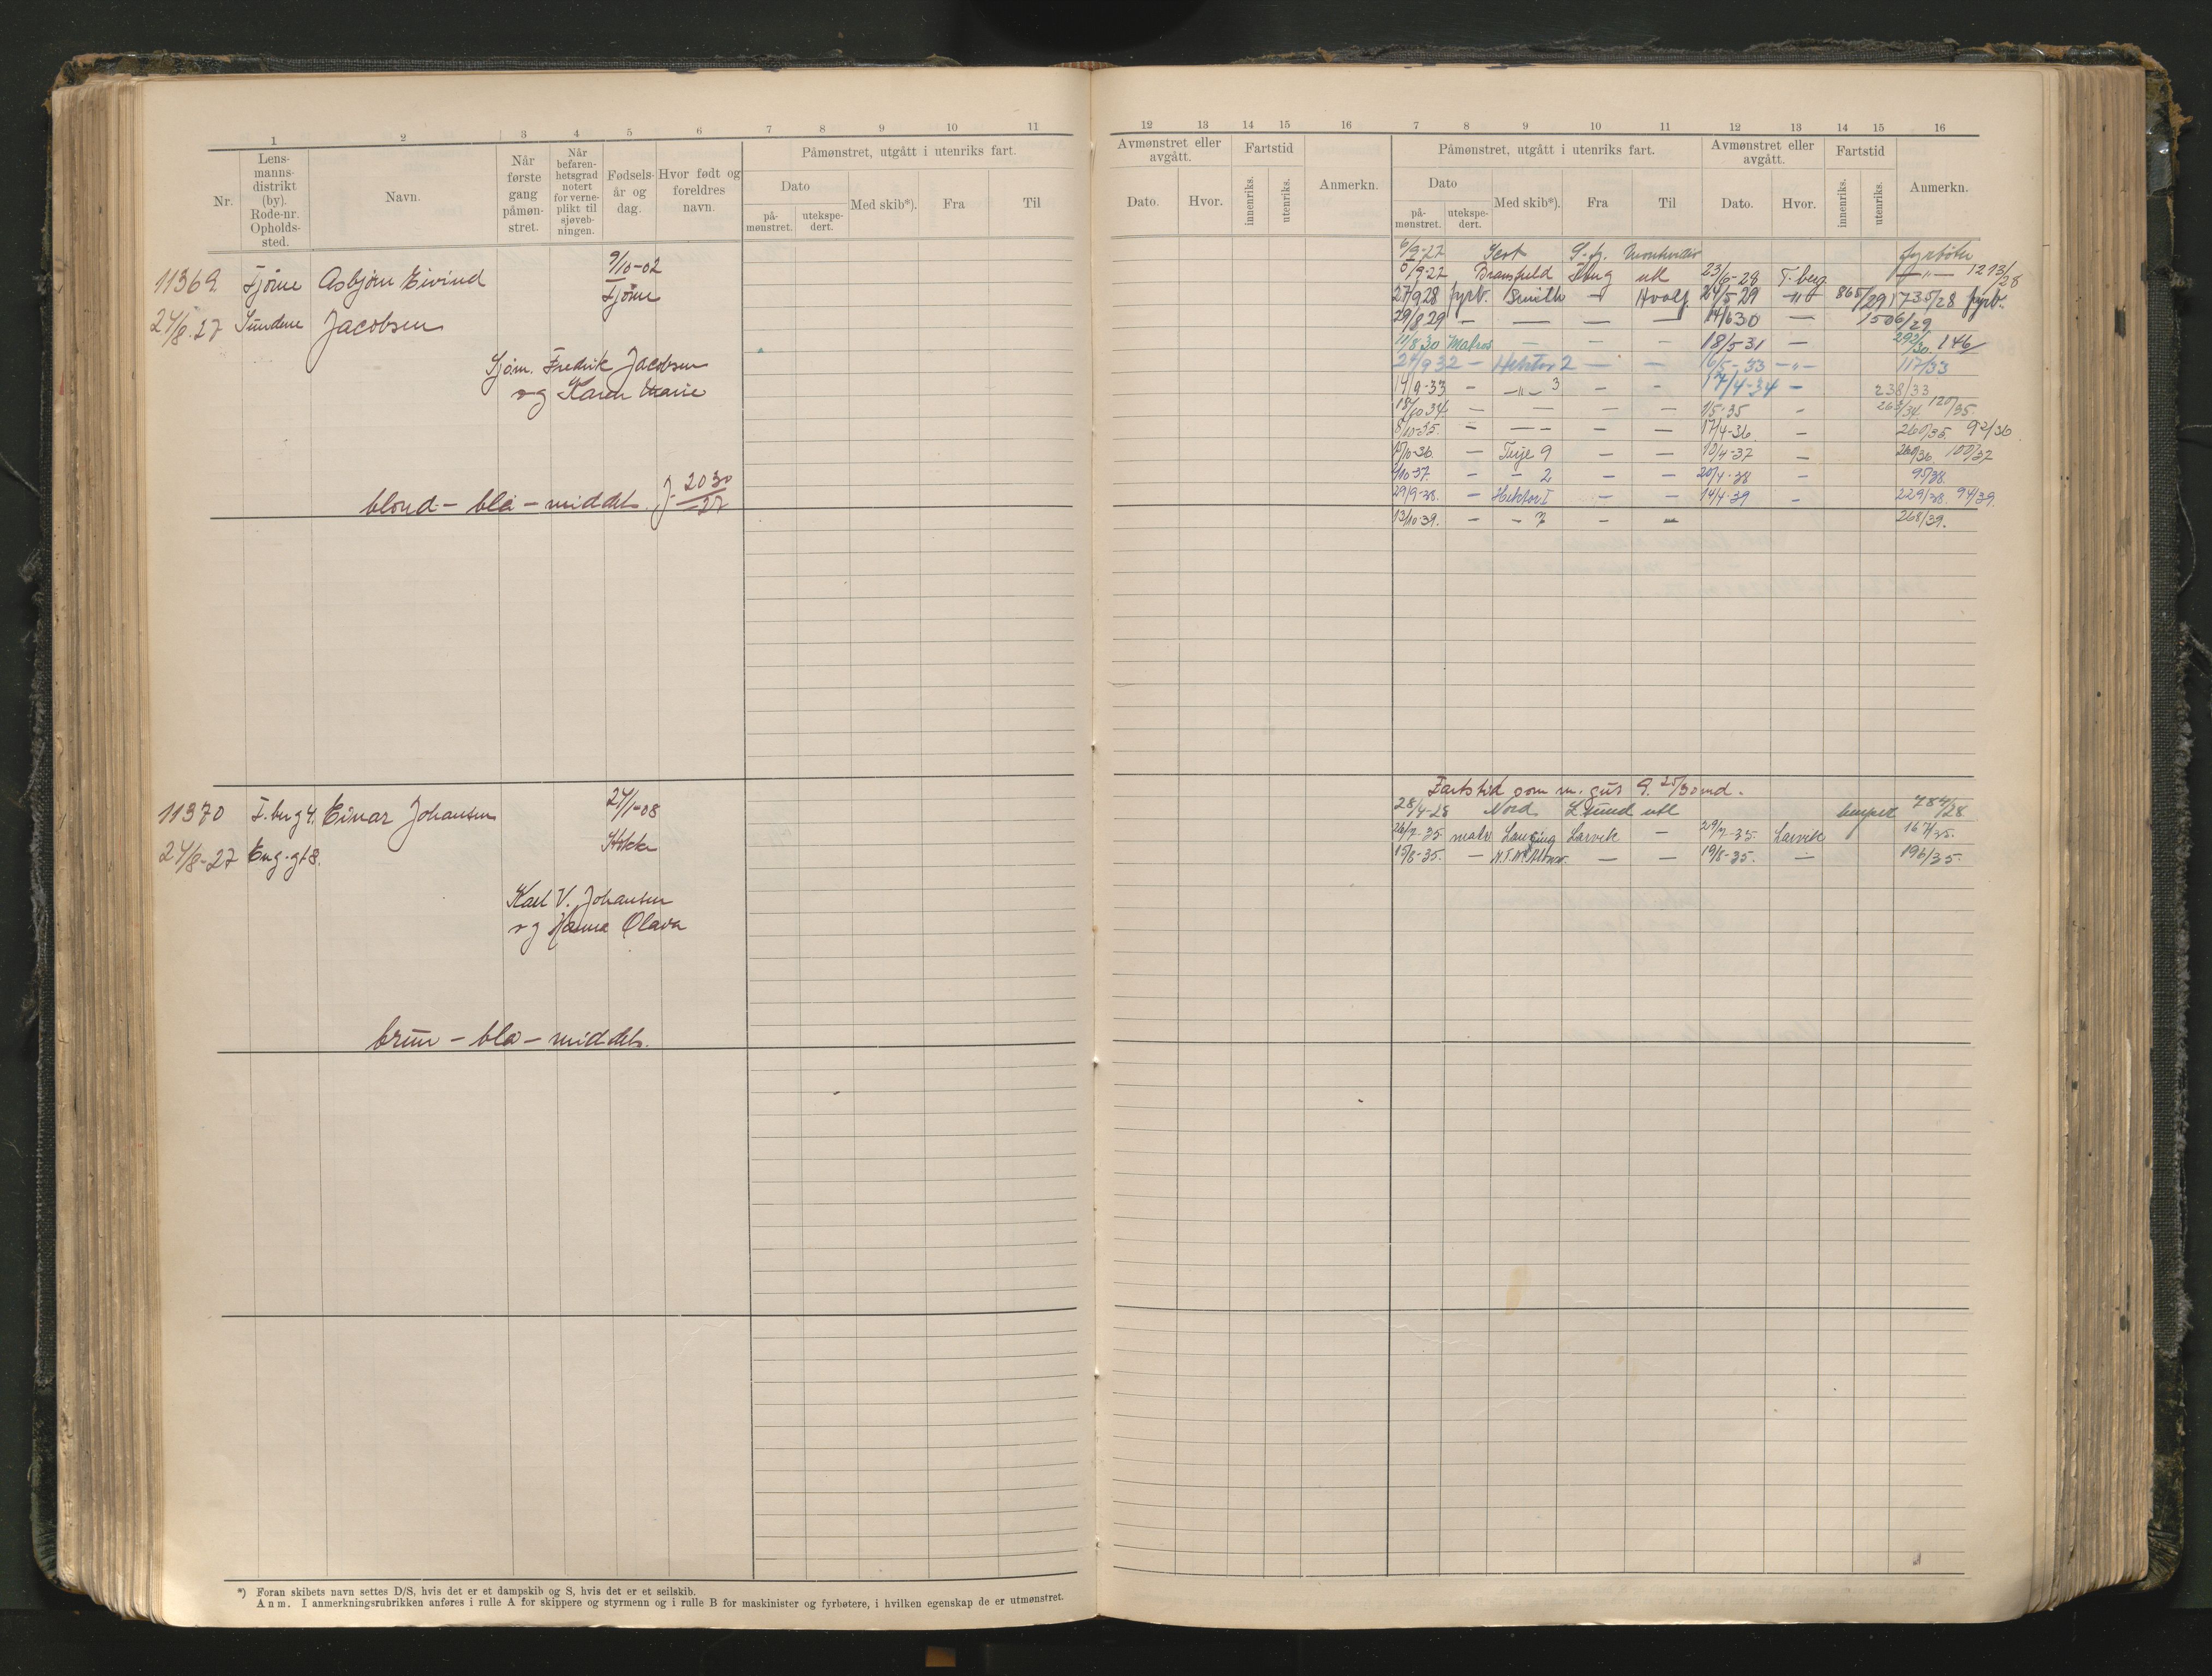 1 2 3 4 5 6 7 8 9 10 11
Nr.
Lens-
manns-
distrikt
(by).
Rode-nr.
Opholds-
sted.
Navn.
Når
første
gang
påmøn-
stret.
Når
befaren-
hetsgrad
notert
for verne-
plikt til
sjøveb-
ningen.
Fødsels-
år og
dag.
Hvor født og
foreldres
navn.
Påmønstret, utgått i utenriks fart.
Dato
på-
mønstret.
utekspe-
dert.
Med skib*).
Fra
Til
11369 Tjøme Asbjørn Eivind 9/10-02
Tjøme
24/8.27 Sundene Jacobsen
Sjøm. Fredrik Jacobsen
og Karen Marie
blond - blå - middels. J. 2030/27
11370 T.berg 4. Einar Johansen 24/1-08
24/8-27 Eng.gt 8.
Karl V. Johansen
og Hanna Olava
brun - blå - middels.
*) Foran skibets navn settes D/S, hvis det er et dampskib og S, hvis det er et seilskib.
Anm. I anmerkningsrubrikken anføres i rulle A for skippere og styrmenn og i rulle B for maskinister og fyrbøtere, i hvilken egenskap de er utmønstret.
12 13 14 15 16 7 8 9 10 11 12 13 14 15 16
Avmønstret eller
avgått.
Dato.
Hvor.
Fartstid
innenriks.
utenriks.
Anmerkn.
Påmønstret, utgått i utenriks fart.
Dato
på-
mønstret.
utekspe-
dert.
Med skib*).
Fra
Til
Avmønstret eller
avgått.
Dato.
Hvor.
Fartstid
innenriks.
utenriks.
Anmerkn.
6/9-27 S.fj. Montevideo fyrbøter
5/9-27 Bransfield Tbug utl 23/6-28 T.berg —„— 1293/28
27/9 28 fyrb. Smith — Hvalf. 24/5 29 —„— 865/29 1735/28 fyrb.
29/8 29 — — — — 14/6 30 — 1506/29
11/8 30 Matros — — — 18/5-31 — 292/30. 146/
24/9 32 — Hektor 2 — — 16/5-33 —„— 117/33
14/9-33 — —„— 3 — — 17/4-34 — 238/33
18/10 34 — — — — 1/5-35 — 263/34. 120/35.
8/10-35. — — — — 17/4-36. — 260/35. 92/36
15/10-36. — Terje 9 — — 10/4-37 — 260/36 100/37
4/10-37. — — 2 — — 20/4-38 — 95/38.
29/9-38. — Hektor I — — 14/4-39 — 229/38. 94/39.
13/10-39. — — 7 — — 268/39.
Fartstid som m. gut 9. 25/30 md.
28/4-28 Nord L.sund utl 784/28
26/7-35. matr Larvik — 29/7-35. Larvik 167/35.
15/8-35. — — — 19/8-35. — 196/35.